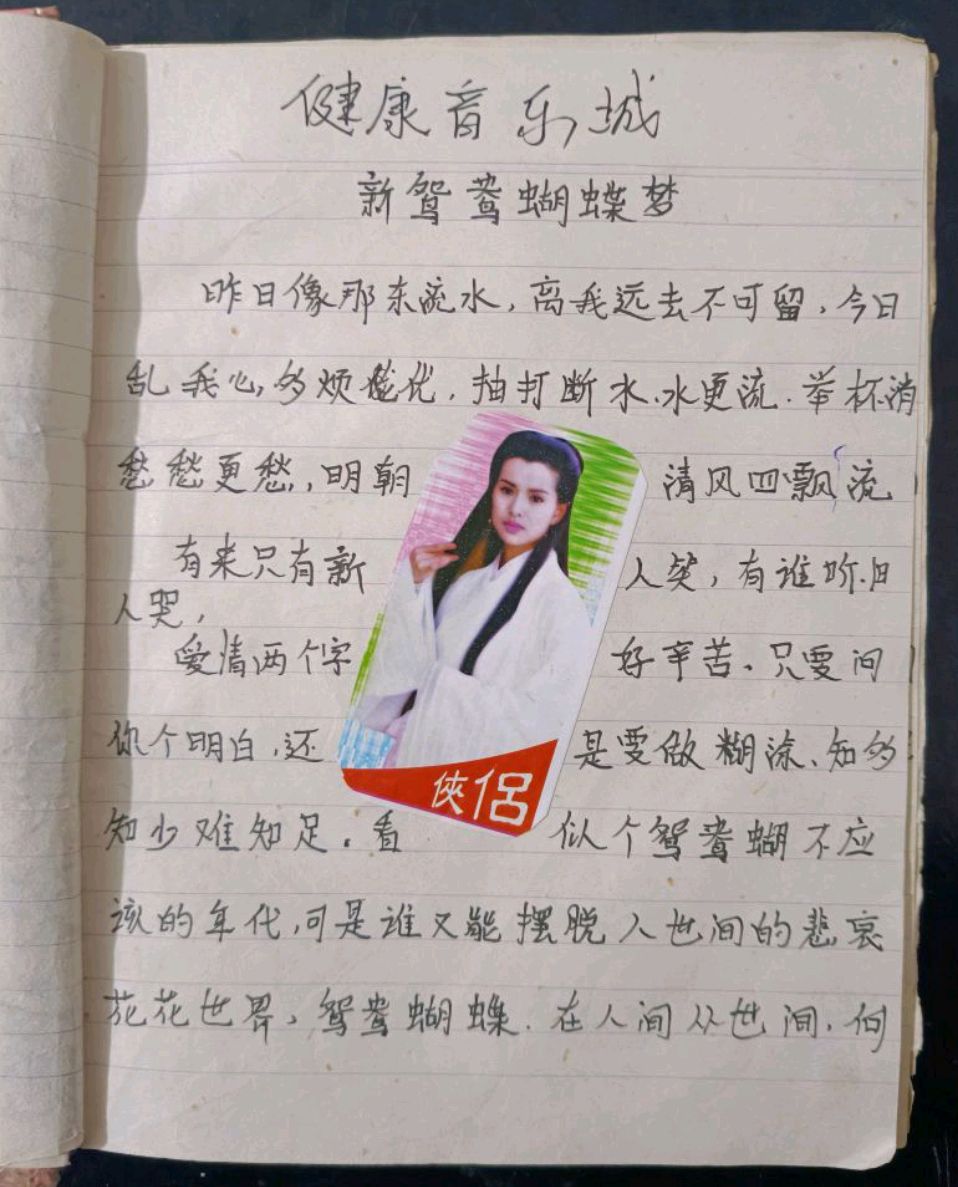 健康音乐城
新鸳鸯蝴蝶梦
昨日像那东流水，离我远去不可留，今日
乱我心，多烦忧，抽打断水、水更流．举杯消
愁愁更愁，明朝清风四飘流
有来只有新人笑，有谁听旧
人哭，
爱情两个字好辛苦、只要问
你个明白，还是要做糊涂、知多
知少难知足．看似个鸳鸯蝴不应
该的年代，可是谁又能摆脱人世间的悲哀
花花世界、鸳鸯蝴蝶．在人间从世间，何
俠侣